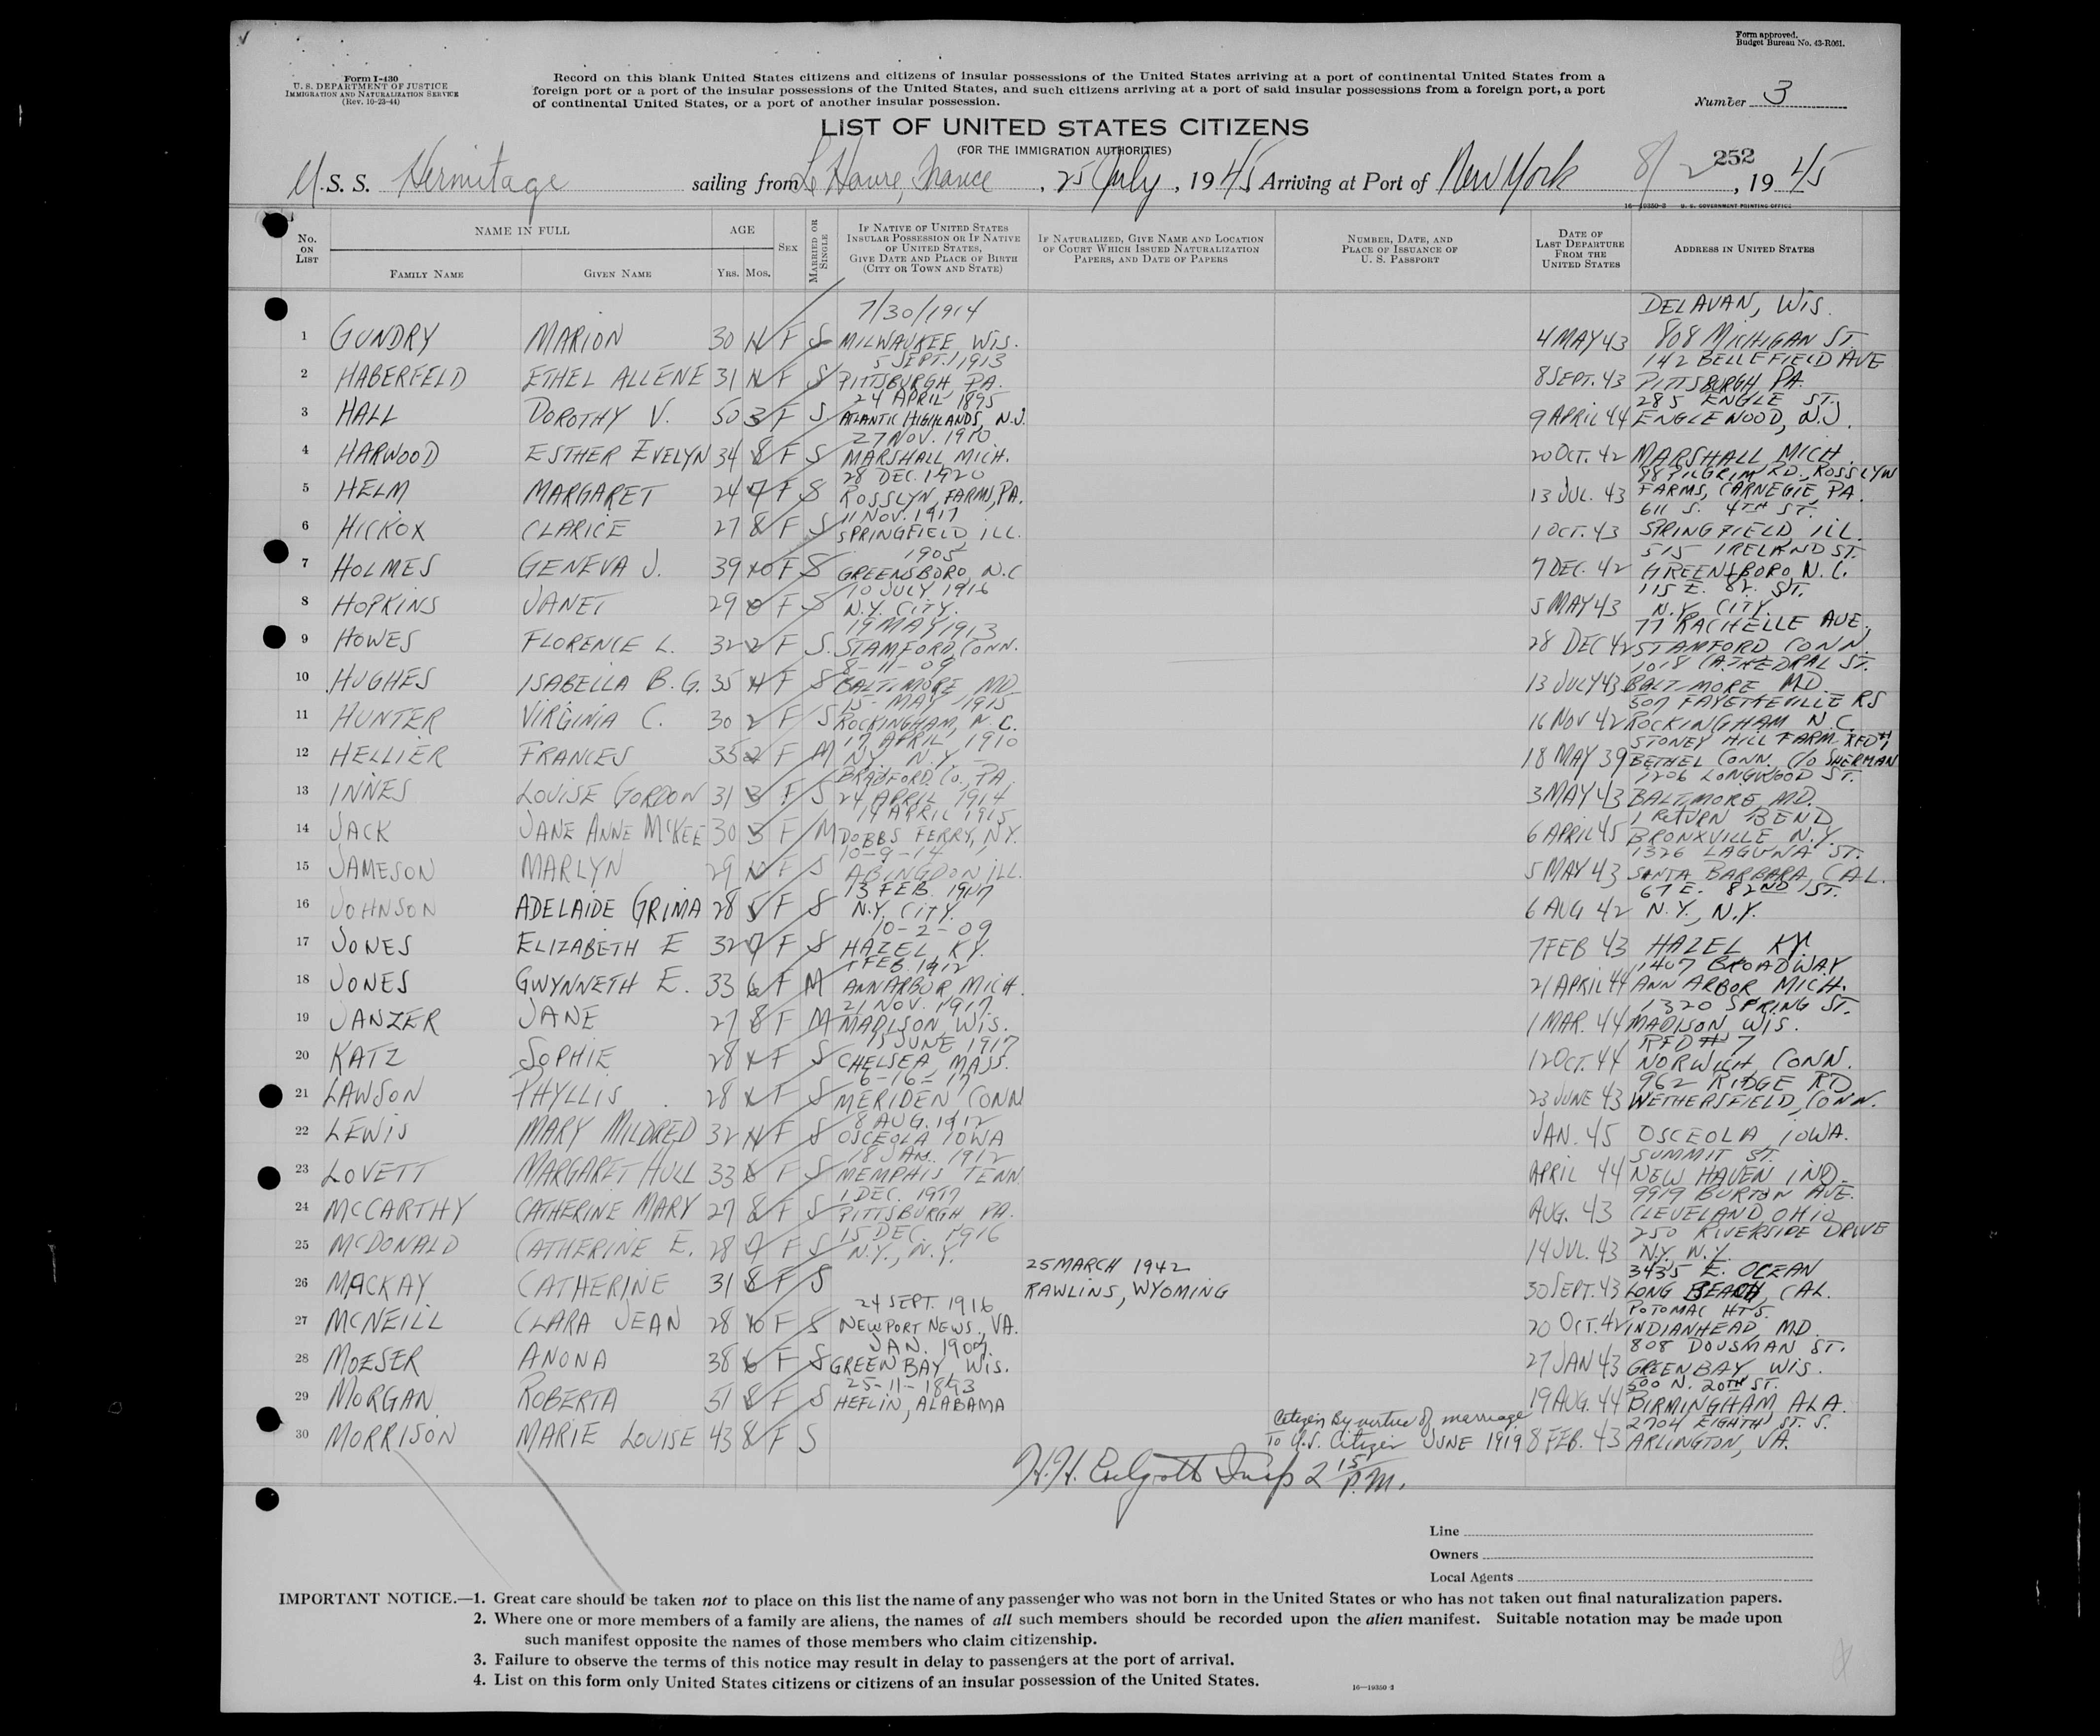 Form approved.
Budget Bureau No. 43-R061.
Form I-430
U. S. DEPARTMENT OF JUSTICE
IMMIGRATION AND NATURALIZATION SERVICE
(Rev. 10-23-44)
Record on this blank United States citizens and citizens of insular possessions of the United States arriving at a port of continental United States from a
foreign port or a port of the insular possessions of the United States, and such citizens arriving at a port of said insular possessions from a foreign port, a port
of continental United States, or a port of another insular possession.
Number 3
LIST OF UNITED STATES CITIZENS
(FOR THE IMMIGRATION AUTHORITIES)
U.S. S. Hermitage sailing from Le Havre, France, 25 July, 1945, Arriving at Port of New York 8/2 252, 1945
16—19350-2 U. S. GOVERNMENT PRINTING OFFICE
No. ON LIST
NAME IN FULL
FAMILY NAME
GIVEN NAME
AGE
YRS. MOS.
SEX
MARRIED OR SINGLE
IF NATIVE OF UNITED STATES INSULAR POSSESSION OR IF NATIVE OF UNITED STATES, GIVE DATE AND PLACE OF BIRTH (CITY OR TOWN AND STATE)
IF NATURALIZED, GIVE NAME AND LOCATION OF COURT WHICH ISSUED NATURALIZATION PAPERS, AND DATE OF PAPERS
NUMBER, DATE, AND PLACE OF ISSUANCE OF U. S. PASSPORT
DATE OF LAST DEPARTURE FROM THE UNITED STATES
ADDRESS IN UNITED STATES
7/30/1914 DELAVAN, WIS.
1 GUNDRY MARION 30 11 F S MILWAUKEE WIS. 4 MAY 43 808 MICHIGAN ST.
5 SEPT. 1913 142 BELLEFIELD AVE
2 HABERFELD ETHEL ALLENE 31 F S PITTSBURGH, PA. 8 SEPT. 43 PITTSBURGH PA.
24 APRIL 1895 285 ENGLE ST.
3 HALL DOROTHY V. 50 3 F S ATLANTIC HIGHLANDS, N.J. 9 APRIL 44 ENGLEWOOD, N.J.
27 NOV. 1910
4 HARWOOD ESTHER EVELYN 34 8 F S MARSHALL MICH. 20 OCT. 42 MARSHALL MICH.
28 DEC. 1920 88 PILGRIM RD., ROSSLYN
5 HELM MARGARET 24 7 F S ROSSLYN, FARMS, PA. 13 JUL. 43 FARMS, CARNEGIE, PA.
11 NOV. 1917 611 S. 4TH ST.
6 HICKOX CLARICE 27 8 F S SPRINGFIELD, ILL. 1 OCT. 43 SPRINGFIELD, ILL.
1905 515 IRELAND ST.
7 HOLMES GENEVA J. 39 10 F S GREENSBORO, N.C 7 DEC. 42 GREENSBORO N.C.
10 JULY 1916 115 E. 82. ST.
8 HOPKINS JANET 29 0 F S N.Y. CITY. 5 MAY 43 N.Y. CITY.
19 MAY 1913 77 RACHELLE AUE.
9 HOWES FLORENCE L. 32 2 F S. STAMFORD, CONN. 28 DEC 42 STAMFORD CONN.
8-11-09 1018 CATHEDRAL ST.
10 HUGHES ISABELLA B.G. 35 11 F S BALTIMORE, MD. 13 JULY 43 BALTIMORE MD.
15- MAY 1915 507 FAYETTEVILLE RS
11 HUNTER VIRGINIA C. 30 2 F S ROCKINGHAM, N.C. 16 NOV 42 ROCKINGHAM N.C.
17 APRIL 1910 STONEY HILL FARM RFD#1
12 HELLIER FRANCES 35 2 F M N.Y. N.Y. 18 MAY 39 BETHEL CONN. C/O SHERMAN
BRADFORD. CO., PA. 1206 LONGWOOD ST.
13 INNES LOUISE GORDON 31 3 F S 24 APRIL 1914 3 MAY 43 BALTIMORE, MD.
14 APRIL 1915 1 RETURN BEND
14 JACK JANE ANNE MCKEE 30 3 F M DOBBS FERRY, N.Y. 6 APRIL 45 BRONXVILLE N.Y.
10-9-14 1326 LAGUNA ST.
15 JAMESON MARLYN 29 10 F S ABINGDON ILL. 5 MAY 43 SANTA BARBARA, CAL.
13 FEB. 1917 67 E. 82ND ST.
16 JOHNSON ADELAIDE GRIMA 28 5 F S N.Y. CITY. 6 AUG 42 N.Y., N.Y.
10-2-09
17 JONES ELIZABETH E 32 9 F S HAZEL KY. 7 FEB 43 HAZEL KY.
1 FEB. 1912 1407 BROADWAY
18 JONES GWYNNETH E. 33 6 F M ANN ARBOR MICH. 21 APRIL 44 ANN ARBOR MICH.
21 NOV. 1917. 1320 SPRING ST.
19 JANZER JANE 27 8 F M MADISON, WIS. 1 MAR. 44 MADISON, WIS.
15 JUNE 1917 RFD # 7
20 KATZ SOPHIE 28 F S CHELSEA, MASS. 12 OCT. 44 NORWICH, CONN.
6-16-17 962 RIDGE RD
21 LAWSON PHYLLIS 28 F S MERIDEN CONN 23 JUNE 43 WETHERSFIELD, CONN.
8 AUG. 1912
22 LEWIS MARY MILDRED 32 11 F S OSCEOLA IOWA JAN. 45 OSCEOLA IOWA.
18 JAN. 1912 SUMMIT ST.
23 LOVETT MARGARET HULL 33 6 F S MEMPHIS TENN. APRIL 44 NEW HAVEN IND.
1 DEC. 1917 9919 BURTON AVE.
24 MCCARTHY CATHERINE MARY 27 8 F S PITTSBURGH PA. AUG. 43 CLEVELAND OHIO
15 DEC. 1916 250 RIVERSIDE DRIVE
25 MCDONALD CATHERINE E. 28 9 F S N.Y., N.Y. 14 JUL. 43 N.Y. N.Y.
25 MARCH 1942 3435 E. OCEAN
26 MACKAY CATHERINE 31 8 F S RAWLINS, WYOMING 30 SEPT. 43 LONG BEACH, CAL.
24 SEPT. 1916 POTOMAC HTS.
27 MCNEILL CLARA JEAN 28 10 F S NEWPORT NEWS., VA. 20 OCT. 42 INDIANHEAD, MD.
JAN. 1907. 808 DOUSMAN ST.
28 MOESER ANONA 38 6 F S GREEN BAY, WIS. 27 JAN 43 GREEN BAY, WIS.
25-11-1893 500 N. 20TH ST.
29 MORGAN ROBERTA 51 8 F S HEFLIN, ALABAMA 19 AUG. 44 BIRMINGHAM ALA.
Citizen By virtue of marriage 2704 EIGHTH ST. S.
30 MORRISON MARIE LOUISE 43 8 F S To U.S. Citizen JUNE 1919 8 FEB. 43 ARLINGTON, VA.
H.H. Insp 2 15/P.M.
Line
Owners
Local Agents
IMPORTANT NOTICE.—1. Great care should be taken not to place on this list the name of any passenger who was not born in the United States or who has not taken out final naturalization papers.
2. Where one or more members of a family are aliens, the names of all such members should be recorded upon the alien manifest. Suitable notation may be made upon
such manifest opposite the names of those members who claim citizenship.
3. Failure to observe the terms of this notice may result in delay to passengers at the port of arrival.
4. List on this form only United States citizens or citizens of an insular possession of the United States.
16—19350-2